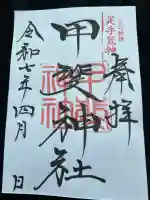 奉拝
足手荒神
甲斐神社
令和七年四月 日